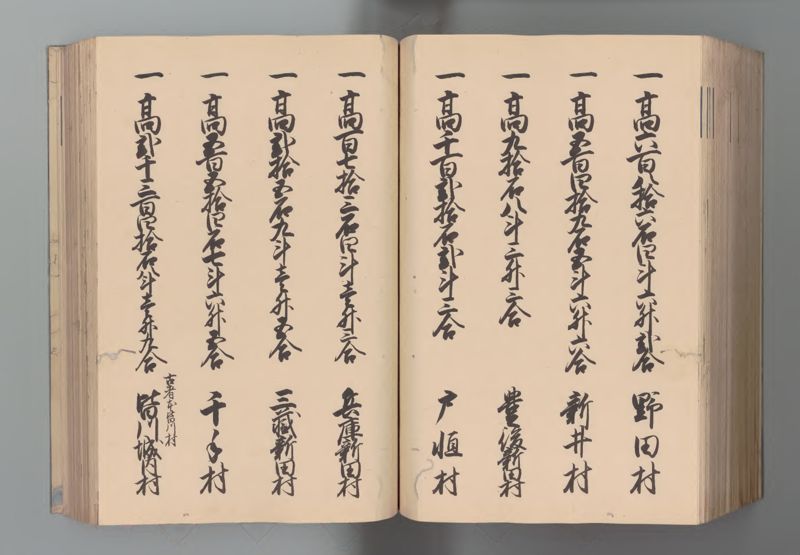 一 高六百八拾六石四斗六升弐合 野田村
一 高五百四拾九石五斗六升六合 新井村
一 高九拾石八斗二升二合 豊後新田村
一 高千百弐拾石弐斗三合 戸恒村
一 高百七拾三石四斗壱升三合 兵庫新田村
一 高弐拾五石九斗壱升五合 三蔵新田村
一 高五百五拾四石七斗六升五合 千手村
一 高弐千三百四拾石八斗壱升九合 皆川城内村
古者皆川村